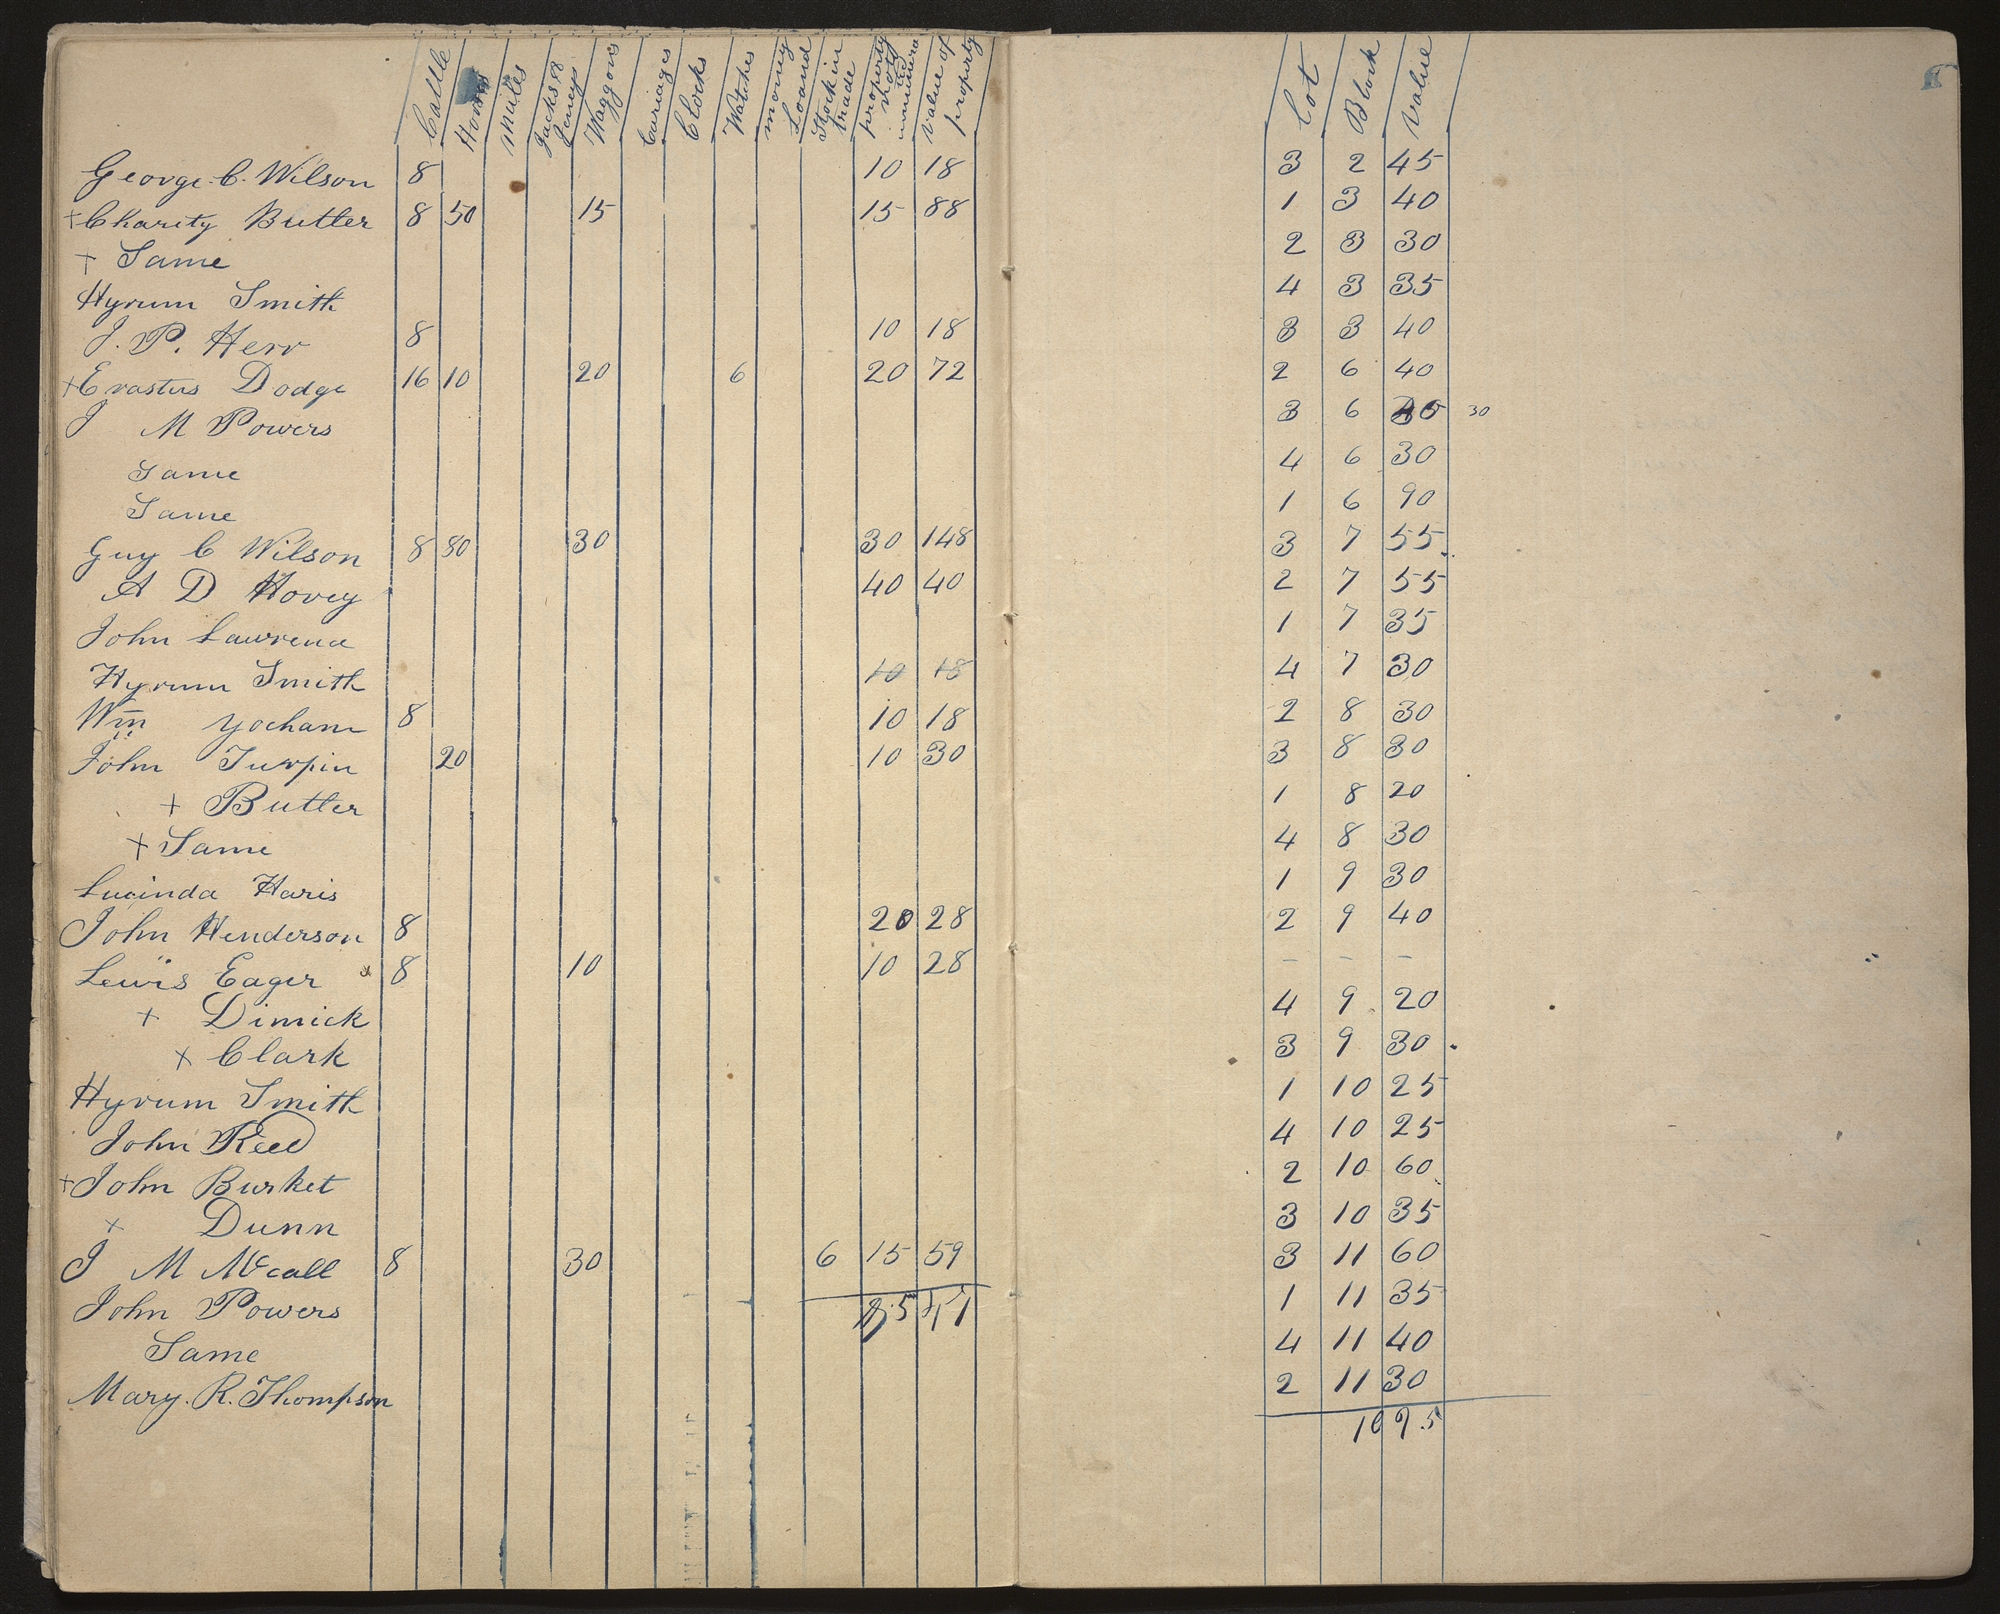 Cattle Horses Mules Jacks & Jennys Waggons Carriages Clocks Watches money Loand Stock in trade property not enumera value of property Lot Block Value
George. C. Wilson 8 10 18 3 2 45
+ Charity Butler 8 50 15 15 88 1 3 40
+ Same 2 3 30
Hyrum Smith 4 3 35
J. P. Herr 8 10 18 3 3 40
+ Erastus Dodge 16 10 20 6 20 72 2 6 40
J M Powers 3 6 30
Same 4 6 30
Same 1 6 90
Guy C Wilson 8 80 30 30 148 3 7 55
A D Hovey 40 40 2 7 55
John Lawrence 1 7 35
Hyrum Smith 10 18 4 7 30
Wm Yocham 8 10 18 2 8 30
John Turpin 20 10 30 3 8 30
+ Butler 1 8 20
+ Same 4 8 30
Lucinda Haris 1 9 30
John Henderson 8 20 28 2 9 40
Lewis Eager 8 10 10 28 – – –
+ Dimick 4 9 20
+ Clark 3 9 30
Hyrum Smith 1 10 25
John Reed 4 10 25
+ John Burket 2 10 60
+ Dunn 3 10 35
J M McCall 8 30 6 15 59 3 11 60
John Powers 1 11 35
Same 4 11 40
Mary. R. Thompson 2 11 30
1095